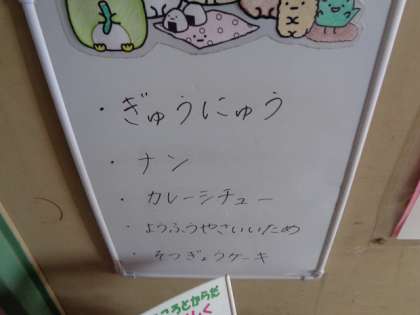 ・ぎゅうにゅう
・ナン
・カレーシチュー
・ようふうやさいいため
・そつぎょうケーキ
こころとからだ